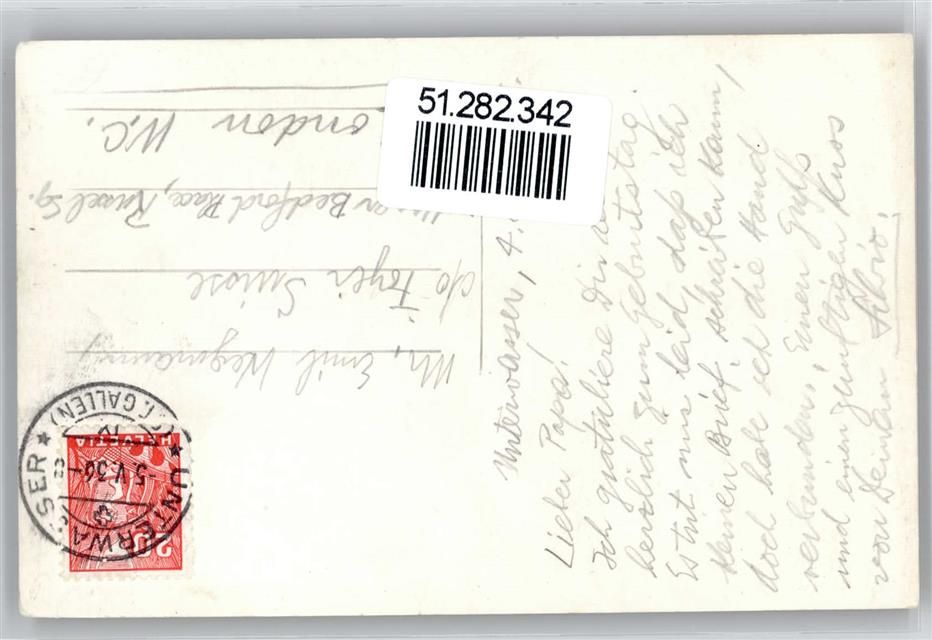 51.282.342
Unterwasser, 4.
Lieber Papa!
Ich gratuliere Dir
herzlich zum Geburtstag
Es tut mir leid, daß ich
keinen Brief schreiben kann,
doch habe ich die Hand
verbunden. Einen Gruss
und einen Kuss
von Deinem
Mr. Emil
c/o Foyer Suisse
Bedford Place, Russel Sq.
ondon W.C.
UNTERWASSER
(ST. GALLEN)
-5.V.36-8
HELVETIA
20